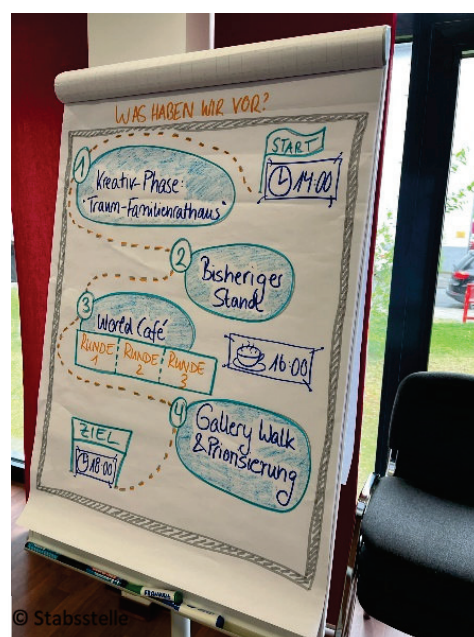 WAS HABEN WIR VOR?
START
14:00
1
Kreativ-Phase:
"Traum-Familienrathaus"
2
Bisheriger
Stand
3
World Café
RUNDE 1
RUNDE 2
RUNDE 3
16:00
4
Gallery Walk
& Priorisierung
ZIEL
18:00
© Stabsstelle